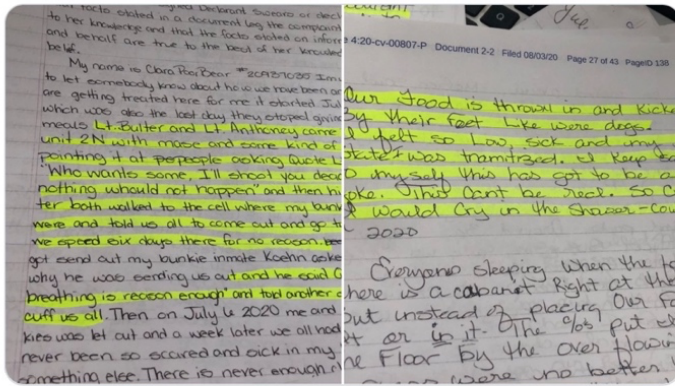 to her knowledge and that the facts stated on inform
and behalf are true to the best of her knowled
belief.
My name is Clara PoorBear
to let somebody know about how we have been or
are getting treated here for me it started Jul
which was also the last day they stoped giving
meals Lt. Bulter and Lt Anthoney came
unit 2N with mase and some kind of
pointing it at perpeople asking Quote L
"Who wants some, I'll shoot you dead
nothing whould not happen" and then h
ter both walked to the cell where my bun
were and told us all to come out and go t
we speed six days there for no reason.
got send out my bunkie inmate Koehn aske
why he was sending us out and he said
breathing is reason enough" and told another
cuff us all. Then on July 6 2020 me and
kies was let out and a week later we all had
never been so scared and sick in my
something else. There is never enough
4:20-cv-00807-P Document 2-2 Filed 08/03/20 Page 27 of 43 PageID 138
Our food is thrown in and Kicke
By their feet Like were dogs.
I felt so Low, sick and my
State I was tramitized. I Keep
myself this has got to be a
oke. This Cant be real. So
I would Cry in the Shower-Cou
2020
Everyone sleeping when the
here is a cabanet Right at the
But instead of placing Our Fo
or in it. The c/os put
Floor By the over flowi
were no better